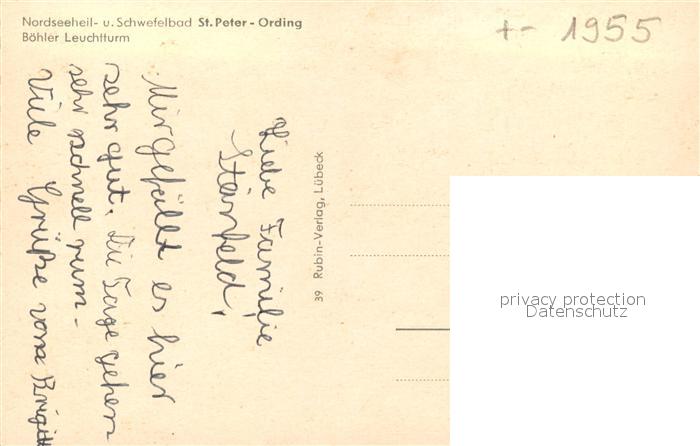 Nordseeheil- u. Schwefelbad St. Peter - Ording
Böhler Leuchtturm
+- 1955
Liebe Familie
Stänfeld,
Mir gefällt es hier
sehr gut. Die Tage gehen
sehr schnell rum.
Viele Grüße von Brigitt
39 Rubin-Verlag, Lübeck
privacy protection
Datenschutz